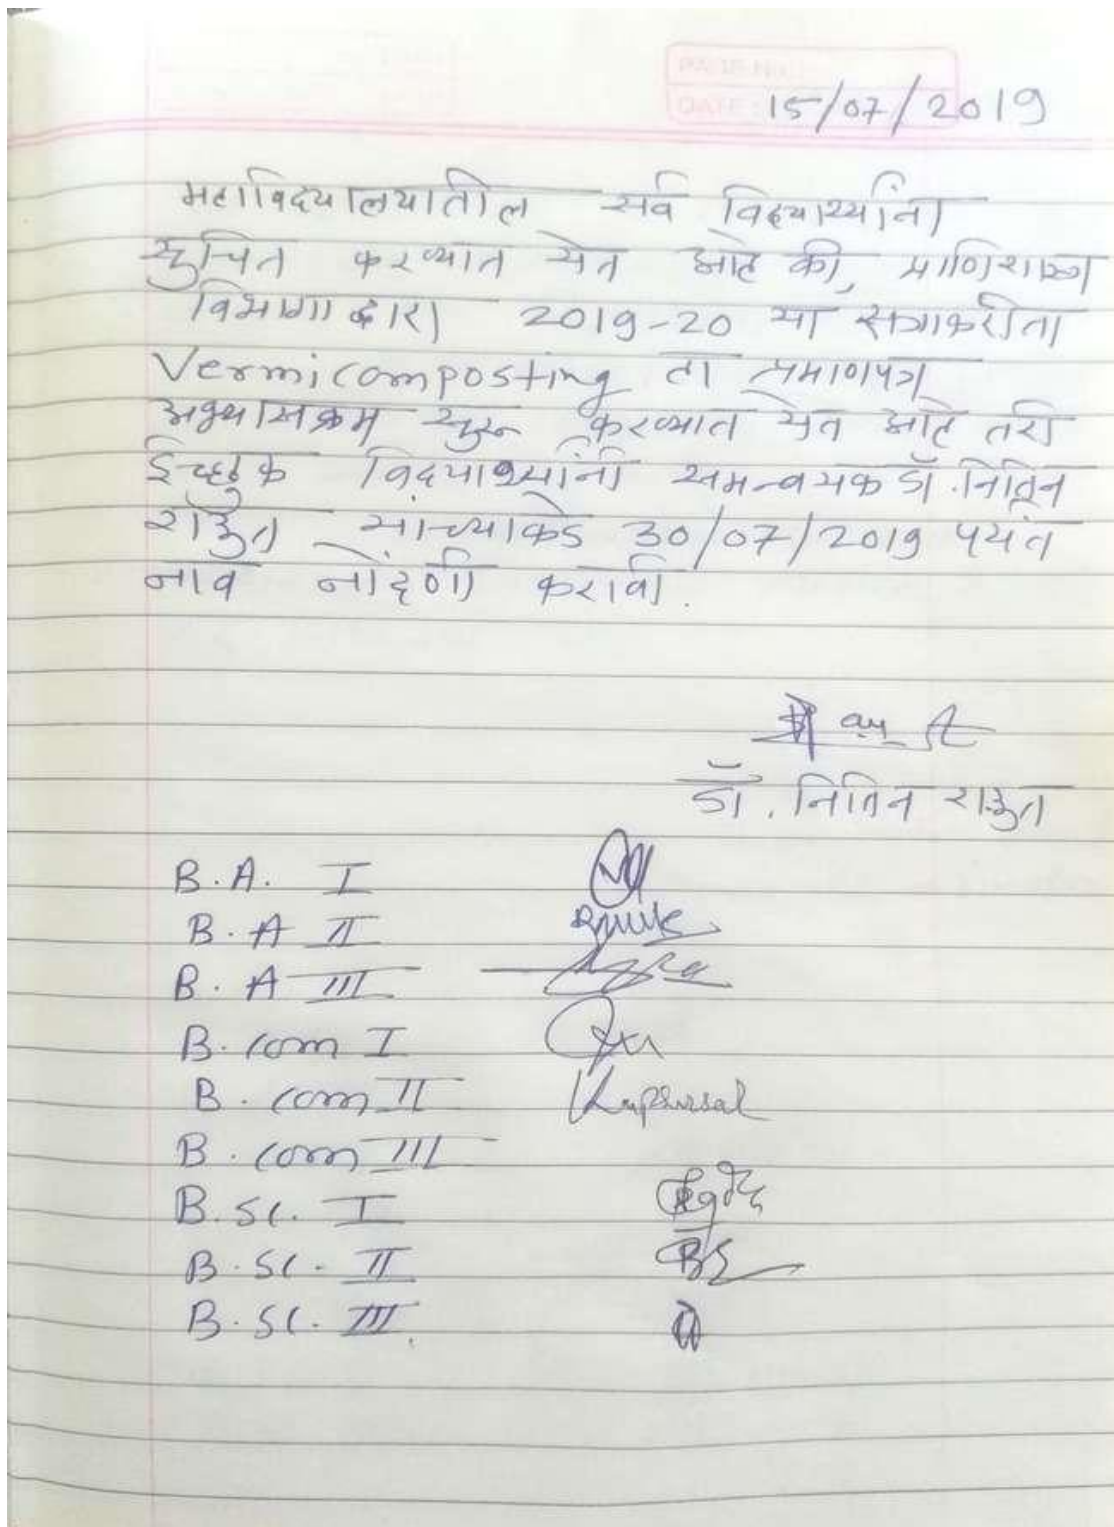 PAGE NO.
DATE: 15/07/2019
महाविद्यालयातील सर्व विद्यार्थ्यांना
सुचित करण्यात येत आहे की, प्राणिशास्त्र
विभागाद्वारा 2019-20 या सत्राकरीता
Vermicomposting हा प्रमाणपत्र
अभ्यासक्रम सुरू करण्यात येत आहे तरी
ईच्छुक विद्यार्थ्यांनी समन्वयक डॉ. नितिन
राऊत यांच्याकडे 30/07/2019 पर्यंत
नाव नोंदणी करावी.
डॉ. नितिन राऊत
B.A. I
B.A II
B.A III
B.com I
B.com II
B.com III
B.Sc. I
B.Sc. II
B.Sc. III